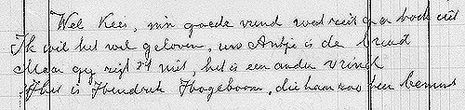 Wel Kees, mn goede vrind wed reit g'n bock uit
Ik wil het wel geloven, uw Antje is de bruid
Maar gy zyt 't niet, het is een ander vrind
Het is Hendrik Hogeboom, die haar zoo zeer bemint